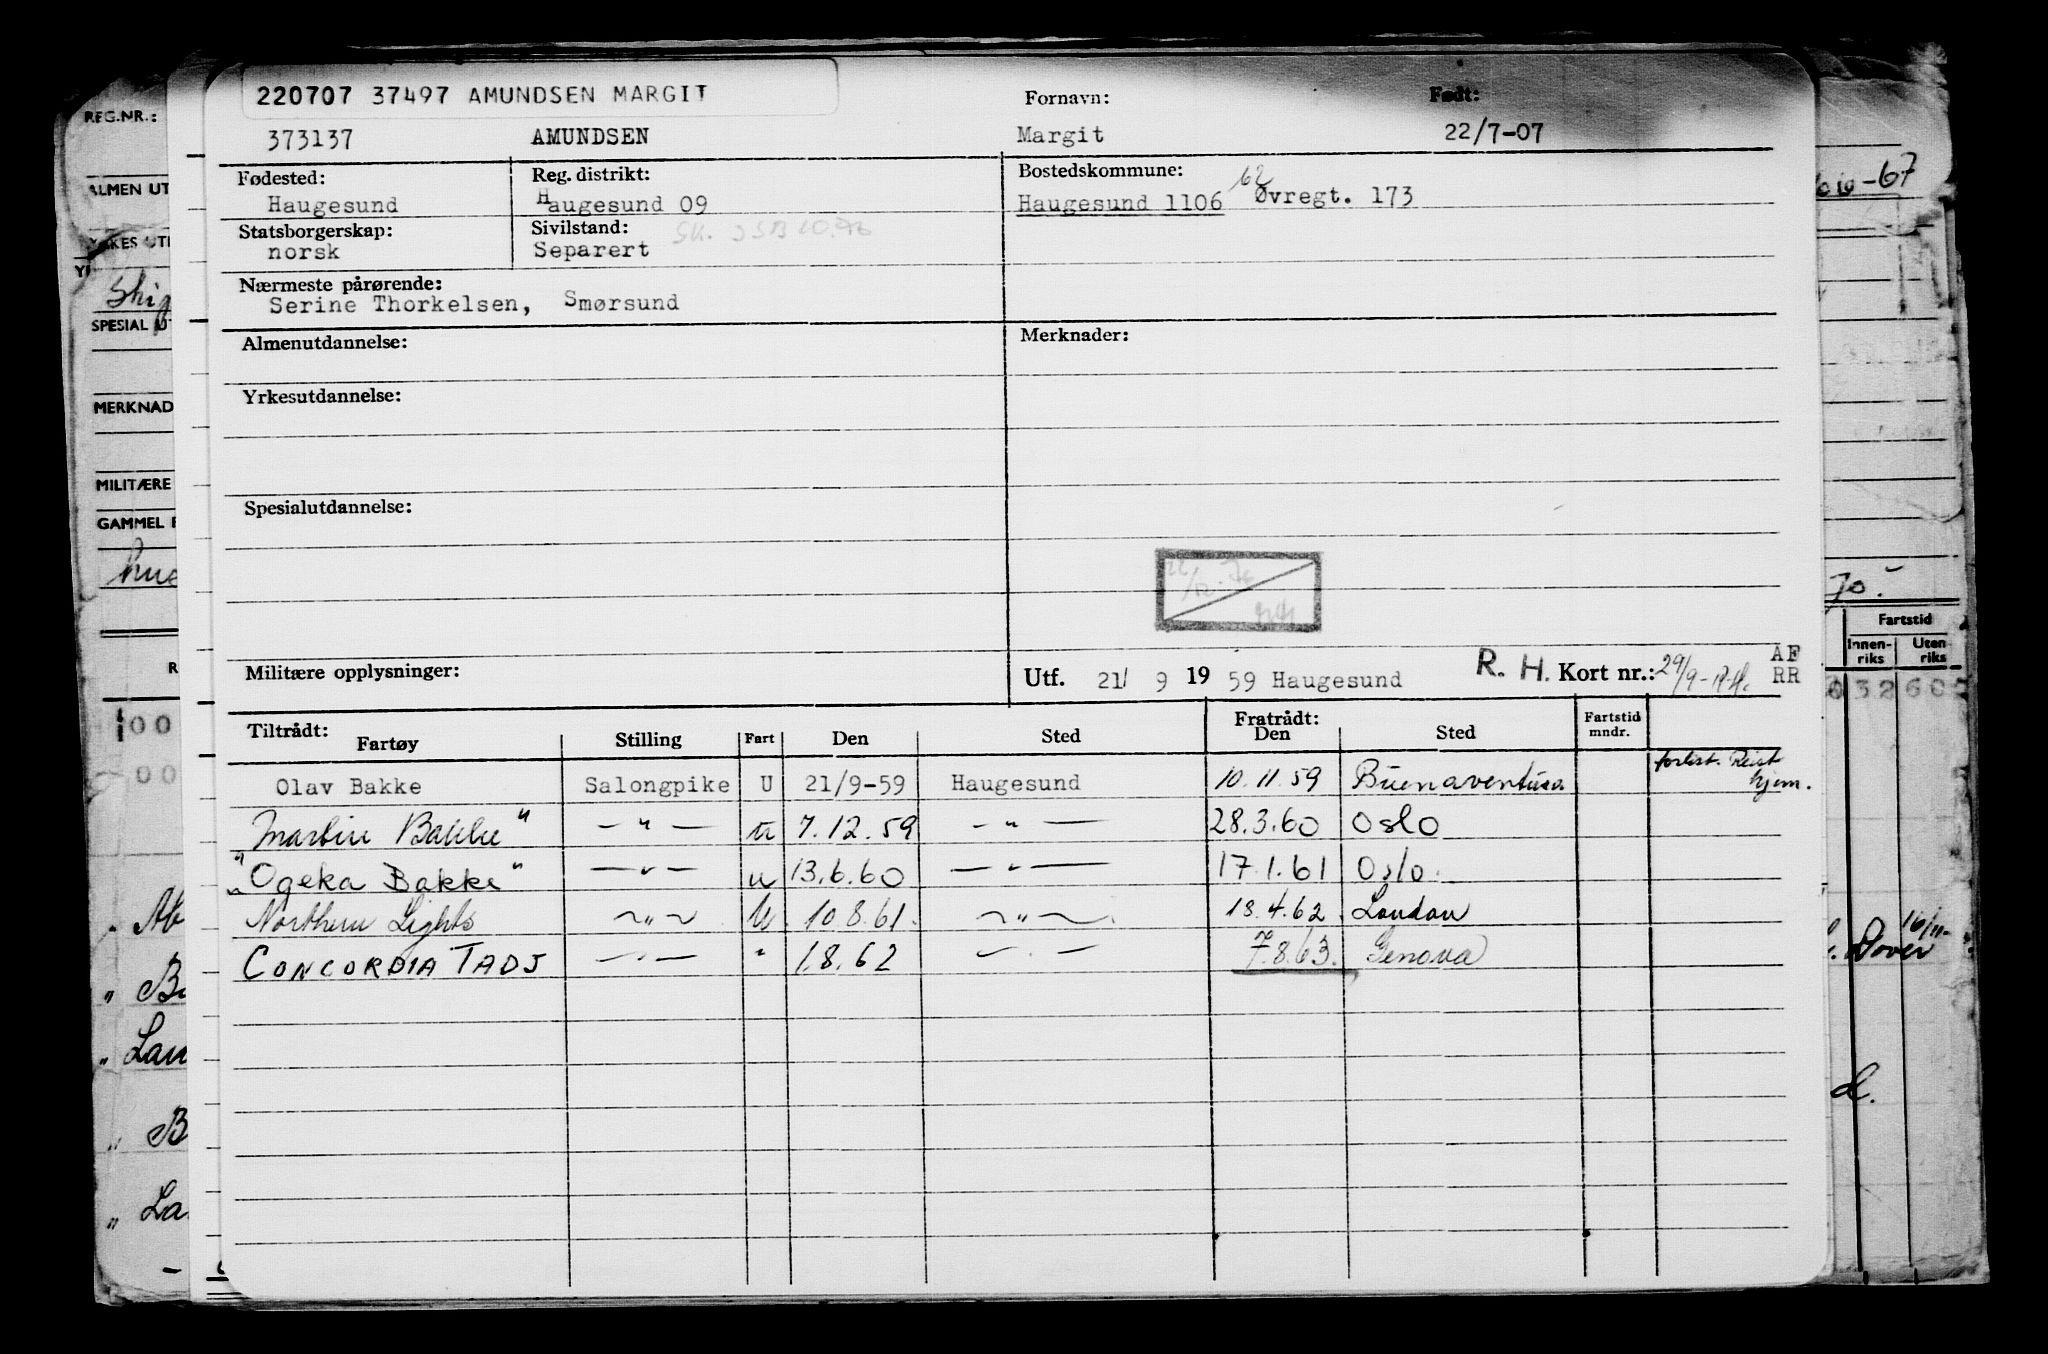 220707 37497 AMUNDSEN MARGIT
Fornavn: Født:
373137 AMUNDSEN Margit 22/7-07
Fødested: Reg. distrikt: Bostedskommune:
Haugesund Haugesund 09 Haugesund 1106 62 Øvregt. 173
Statsborgerskap: Sivilstand:
norsk Separert
Nærmeste pårørende:
Serine Thorkelsen, Smørsund
Almenutdannelse: Merknader:
Yrkesutdannelse:
Spesialutdannelse:
Militære opplysninger: Utf. 21/ 9 19 59 Haugesund R. H. Kort nr.: AF
RR
Tiltrådt: Fratrådt:
Fartøy Stilling Fart Den Sted Den Sted Fartstid
mndr.
Olav Bakke Salongpike U 21/9-59 Haugesund 10.11.59 Buenaventura forlist. Reist
hjem.
Martin Bakke" — " — u 7.12.59 — " — 28.3.60 Oslo
"Ogeka Bakke" — " — u 13.6.60 — " — 17.1.61 Oslo.
" Northern Lights ~ " ~ U 10.8.61. ~ " ~ 18.4.62 London
CONCORDIA TADJ — " — " 1.8.62 — " — 7.8.63. Genova
REG.NR.:
ALMEN UT
YRKES UT
SPECIAL UT
MERKNAD
MILITÆRE
GAMMEL
-67
70.
Fartstid
Innen-
riks
Uten
riks
32 60
00
00
Dover 16/11-
d.
" B
" Lan
" B
" La